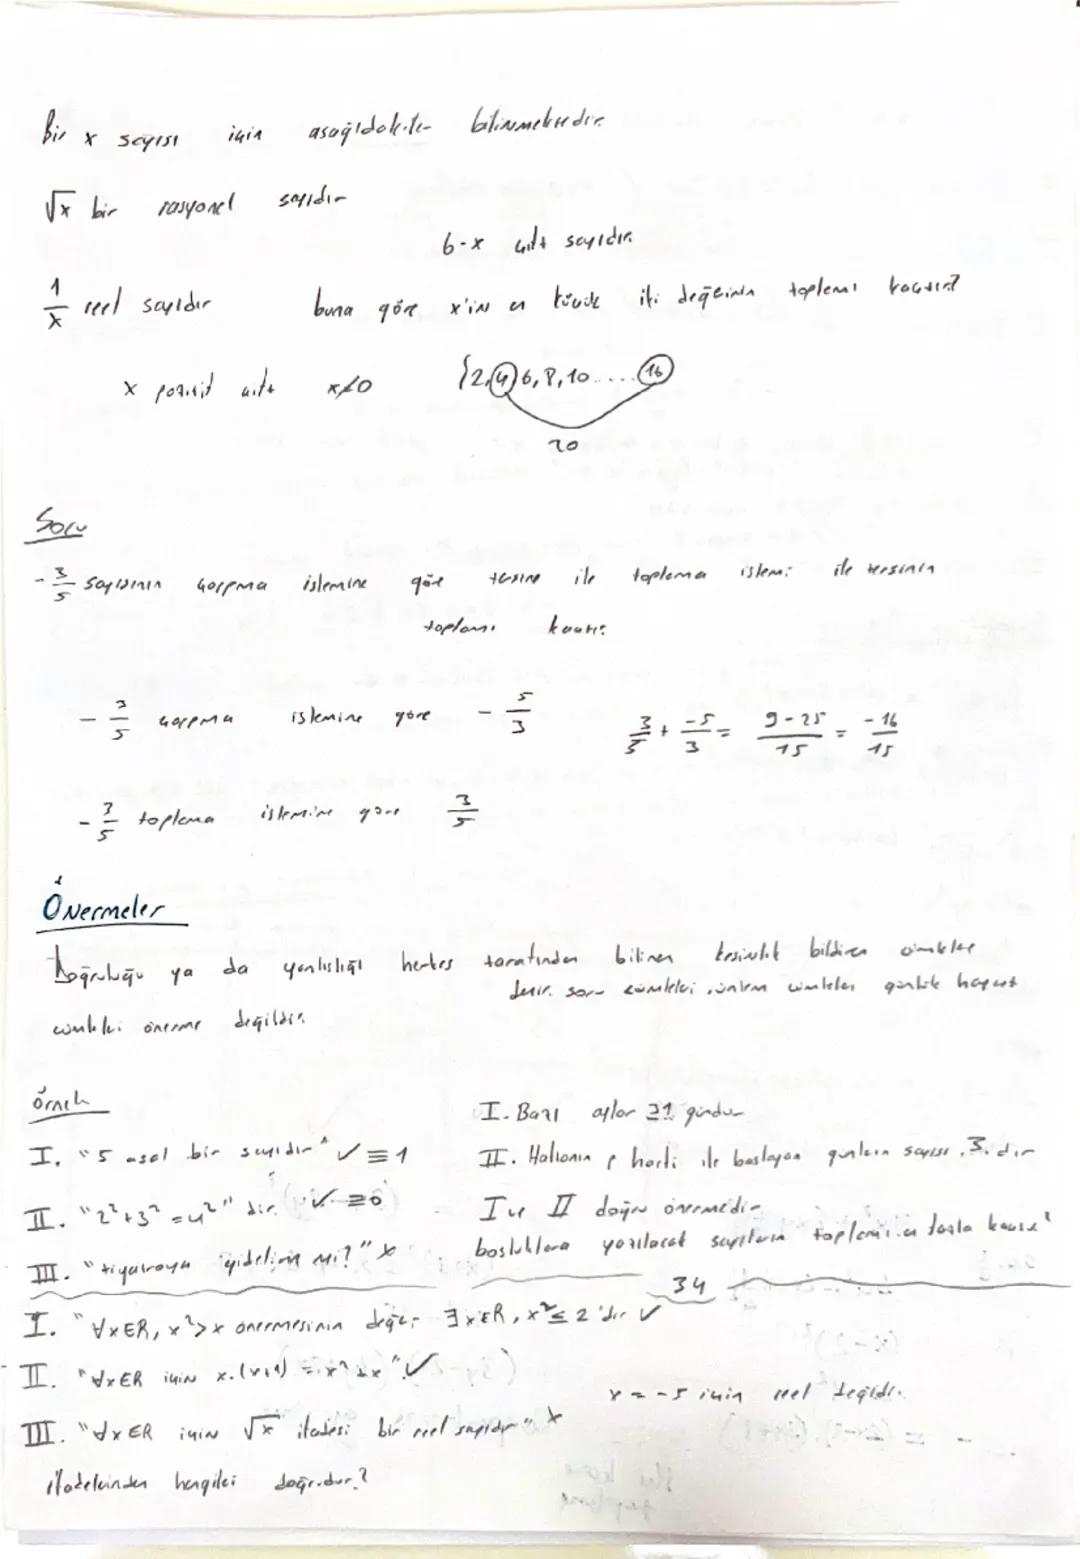 Bir x sayısı için aşağıdakiler bilinmektedir.
√x bir rasyonel sayıdır
6-x çift sayıdır.
1/x reel sayıdır buna göre x'in en küçük iki değerinin toplamı kaçtır?
x pozitif çift x≠0 {2,4,6,8,10.....16
20
Soru
-3/5 sayısının çarpma işlemine göre tersine ile toplama işlemi ile tersinin
toplamı kaçtır?
-3/5 çarpma işlemine göre -5/3 3/5 + -5/3 = 9-25/15 = -16/15
-3/5 toplama işlemine göre 3/5
Önermeler
Doğruluğu ya da yanlışlığı herkes tarafından bilinen kesinlik bildiren cümleler
denir. soru cümleleri, ünlem cümleleri günlük hayat
cümleleri önerme değildir.
örnek
I. "5 asal bir sayıdır" ✓ ≡ 1
II. "2²+3²=4²" dir. ✓ ≡ 0
III. "tiyatroya gidelim mi?" x
I. Bazı aylar 31 gündür
II. Haftanın p harfi ile başlayan günlerin sayısı .3. dır
I ve II doğru önermedir
boşluklara yazılacak sayıların toplamı en fazla kaçtır?
34
I. "∀x∈R, x²>x önermesinin değili ∃x∈R, x²≤2 'dir ✓
II. "∀x∈R için x.(x+1) = x²+x" ✓
x = -5 için reel değildir.
III. "∀x∈R için √x ifadesi bir reel sayıdır" x
ifadelerinden hangileri doğrudur?